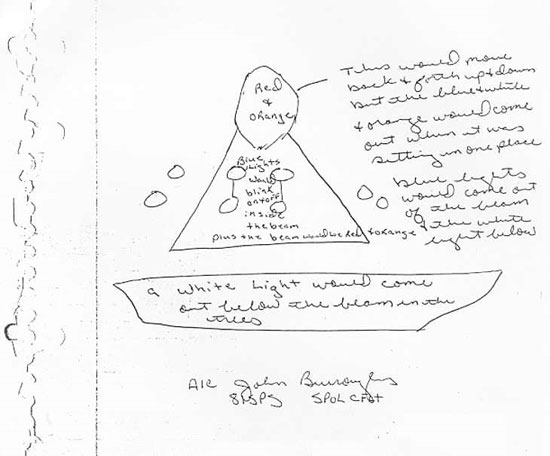 Red
&
orange
This would move
back & forth up & down
but the blue & white
& orange would come
out when it was
sitting in one place
Blue
Lights
would
blink
on & off
inside
the beam
plus the beam would be Red & orange
Blue lights
would come out
of the beam
& the white
light below
a white Light would come
out below the beam in the
trees
A1C John Burroughs
81SPS